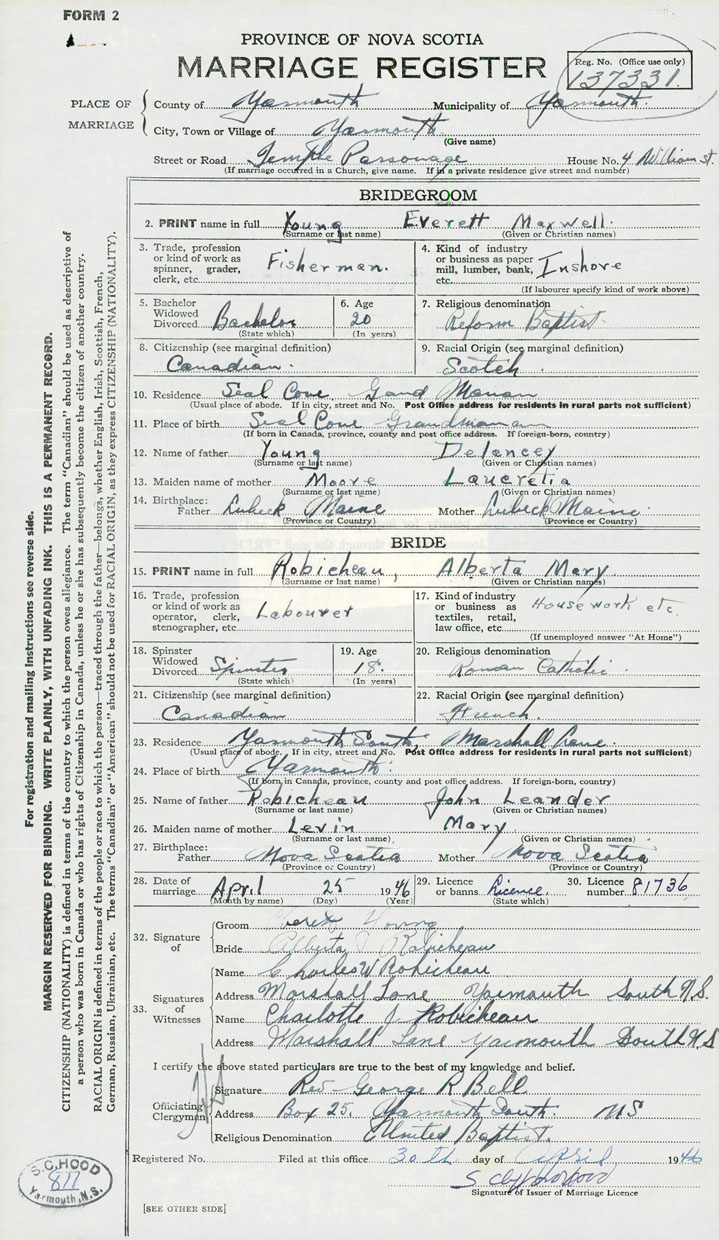 FORM 2
PROVINCE OF NOVA SCOTIA
MARRIAGE REGISTER
Reg. No. (Office use only)
137331.
PLACE OF MARRIAGE
County of Yarmouth Municipality of Yarmouth.
City, Town or Village of Yarmouth
(Give name)
Street or Road Temple Parsonage House No. 4 William St.
(If marriage occurred in a Church, give name. If in a private residence give street and number)
BRIDEGROOM
2. PRINT name in full Young Everett Maxwell.
(Surname or last name) (Given or Christian names)
3. Trade, profession or kind of work as spinner, grader, clerk, etc. Fisherman.
4. Kind of industry or business as paper mill, lumber, bank, etc. Inshore
(If labourer specify kind of work above)
5. Bachelor Widowed Divorced Bachelor
(State which)
6. Age 20
(In years)
7. Religious denomination
Reform Baptist
8. Citizenship (see marginal definition)
Canadian.
9. Racial Origin (see marginal definition)
Scotch.
10. Residence Seal Cove Gand Manan
(Usual place of abode. If in city, street and No. Post Office address for residents in rural parts not sufficient)
11. Place of birth Seal Cove Grandmanan
(If born in Canada, province, county and post office address. If foreign-born, country)
12. Name of father Young Delancey
(Surname or last name) (Given or Christian names)
13. Maiden name of mother Moore Laucretia
(Surname or last name) (Given or Christian names)
14. Birthplace: Father Lubeck Maine Mother Lubeck Maine.
(Province or Country) (Province or Country)
BRIDE
15. PRINT name in full Robicheau, Alberta Mary
(Surname or last name) (Given or Christian names)
16. Trade, profession or kind of work as operator, clerk, stenographer, etc. Labourer
17. Kind of industry or business as textiles, retail, law office, etc. Housework etc.
(If unemployed answer "At Home")
18. Spinster Widowed Divorced Spinster
(State which)
19. Age 18.
(In years)
20. Religious denomination
Roman Catholic.
21. Citizenship (see marginal definition)
Canadian
22. Racial Origin (see marginal definition)
French.
23. Residence Yarmouth South, Marshall Lane.
(Usual place of abode. If in city, street and No. Post Office address for residents in rural parts not sufficient)
24. Place of birth Yarmouth.
(If born in Canada, province, county and post office address. If foreign-born, country)
25. Name of father Robicheau John Leander
(Surname or last name) (Given or Christian names)
26. Maiden name of mother Levin Mary
(Surname or last name) (Given or Christian names)
27. Birthplace: Father Nova Scotia Mother Nova Scotia
(Province or Country) (Province or Country)
28. Date of marriage April 25 1946
(Month by name) (Day) (Year)
29. Licence or banns Licence.
(State which)
30. Licence number 81736
32. Signature of
Groom Young
Bride Alberta Robicheau
33. Signatures of Witnesses
Name Charles W Robicheau
Address Marshall Lane Yarmouth South N.S.
Name Charlotte J Robicheau
Address Marshall Lane Yarmouth South N S
I certify the above stated particulars are true to the best of my knowledge and belief.
Officiating Clergyman
Signature Rev George R Bell
Address Box 25. Yarmouth South NS
Religious Denomination United Baptist.
Registered No. Filed at this office 30th day of April 1946
Signature of Issuer of Marriage Licence
[SEE OTHER SIDE]
S. C. HOOD
877
Yarmouth, N.S.
For registration and mailing instructions see reverse side.
MARGIN RESERVED FOR BINDING. WRITE PLAINLY, WITH UNFADING INK. THIS IS A PERMANENT RECORD.
CITIZENSHIP (NATIONALITY) is defined in terms of the country to which the person owes allegiance. The term "Canadian" should be used as descriptive of
a person who was born in Canada or who has rights of Citizenship in Canada, unless he or she has subsequently become the citizen of another country.
RACIAL ORIGIN is defined in terms of the people or race to which the person—traced through the father—belongs, whether English, Irish, Scottish, French,
German, Russian, Ukrainian, etc. The terms "Canadian" or "American" should not be used for RACIAL ORIGIN, as they express CITIZENSHIP (NATIONALITY).